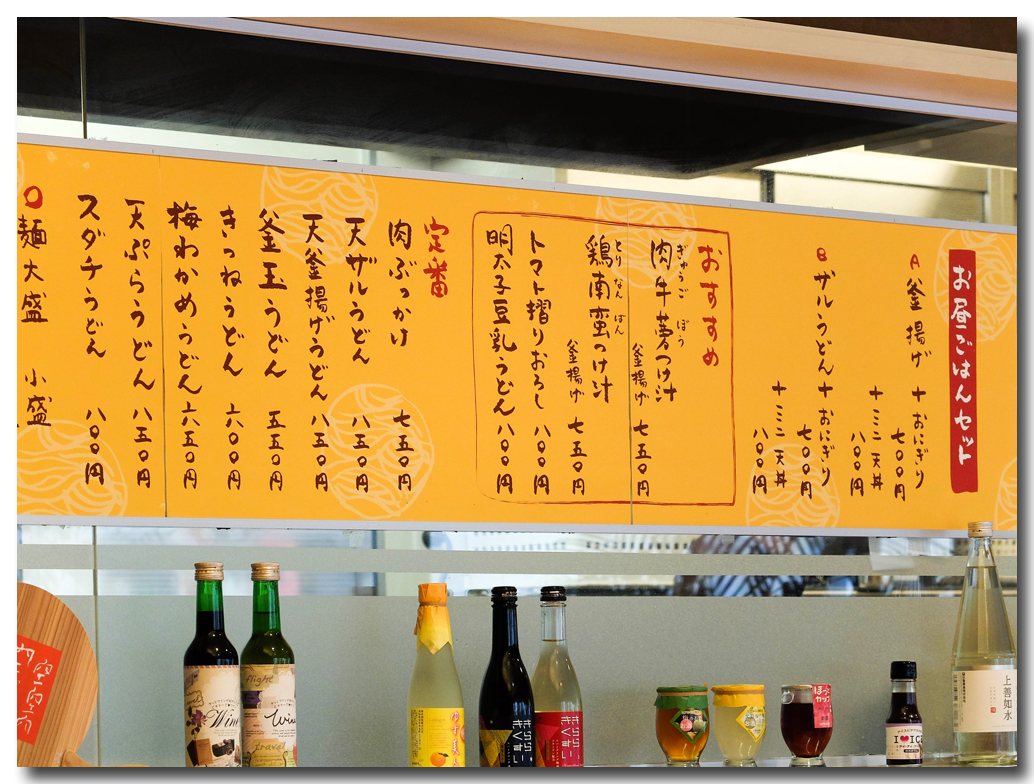 お昼ごはんセット
A 釜揚げ+おにぎり 七〇〇円
+ミニ天丼 八〇〇円
B ザルうどん+おにぎり 七〇〇円
+ミニ天丼 八〇〇円
おすすめ
肉牛蒡つけ汁 ぎゅうごぼう
釜揚げ 七五〇円
鶏南蛮つけ汁 とりなんばん
釜揚げ 七五〇円
トマト摺りおろし 八〇〇円
明太子豆乳うどん 八〇〇円
定番
肉ぶっかけ 七五〇円
天ザルうどん 八五〇円
天釜揚げうどん 八五〇円
釜玉うどん 五五〇円
きつねうどん 六〇〇円
梅わかめうどん 六五〇円
天ぷらうどん 八五〇円
スダチうどん 八〇〇円
麺大盛 小盛
Wine
flight
Wine
travel
上善如水
I ICE